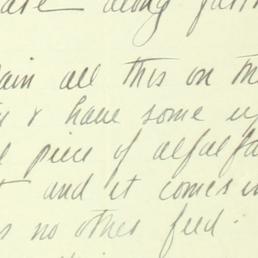 along
ain all this on th
& have some
piece of alfalfa
and it comes
s no other feed.